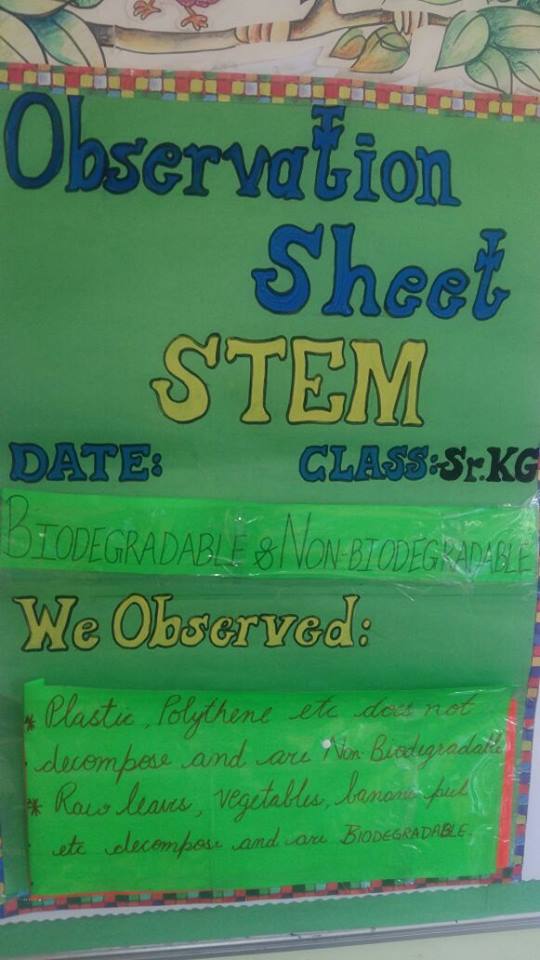 Observation
Sheet
STEM
DATE: CLASS:Sr.KG
BIODEGRADABLE & NON-BIODEGRADABLE
We Observed:
* Plastic, Polythene etc does not
decompose and are Non Biodegradable
* Raw leaves, vegetables, banana peel
etc decompose and are BIODEGRADABLE.